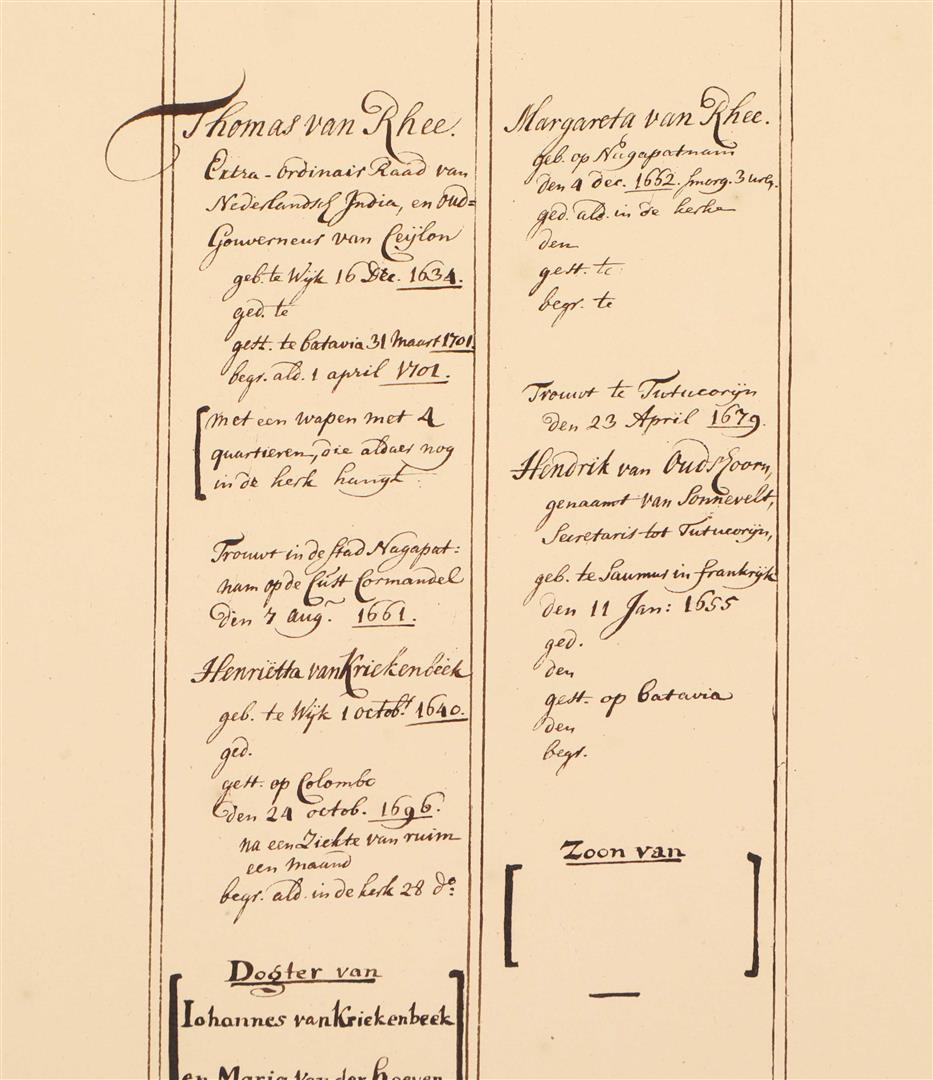 Thomas van Rhee.
Extra-ordinais Raad van
Nederlandsch India, en oud=
Gouverneur van Ceijlon
geb. te Wijk 16 Dec. 1634.
ged. te
gest. te batavia 31 Maart 1701.
begr. ald. 1 april 1701.
[met een wapen met 4
quartieren, die aldaer nog
in de kerk hangt.
Trouwt in de stad Nagapat:
nam op de Cust Cormandel
Den 7 aug. 1661.
Henriëtta van Kriekenbeek
geb. te Wijk 1 octobr 1640.
ged.
gest. op Colombo
den 24 octob. 1696.
na een Ziekte van ruim
een maand
begr. ald. in de kerk 28 do:
Dogter van
[Iohannes van Kriekenbeek]
en Maria van der hoeven
Margareta van Rhee.
geb. op Nagapatnam
den 4 dec. 1662. smorg. 3 urh.
ged. ald. in de kerke
den
gest. te
begr. te
Trouwt te Tutucorijn
den 23 April 1679.
Hendrik van Oudshoorn,
genaamt van Sonnevelt,
Secretaris tot Tutucorijn,
geb. te Saumur in frankrijk
den 11 Jan: 1655
ged.
den
gest. op batavia
den
begr.
Zoon van
[ ]
—